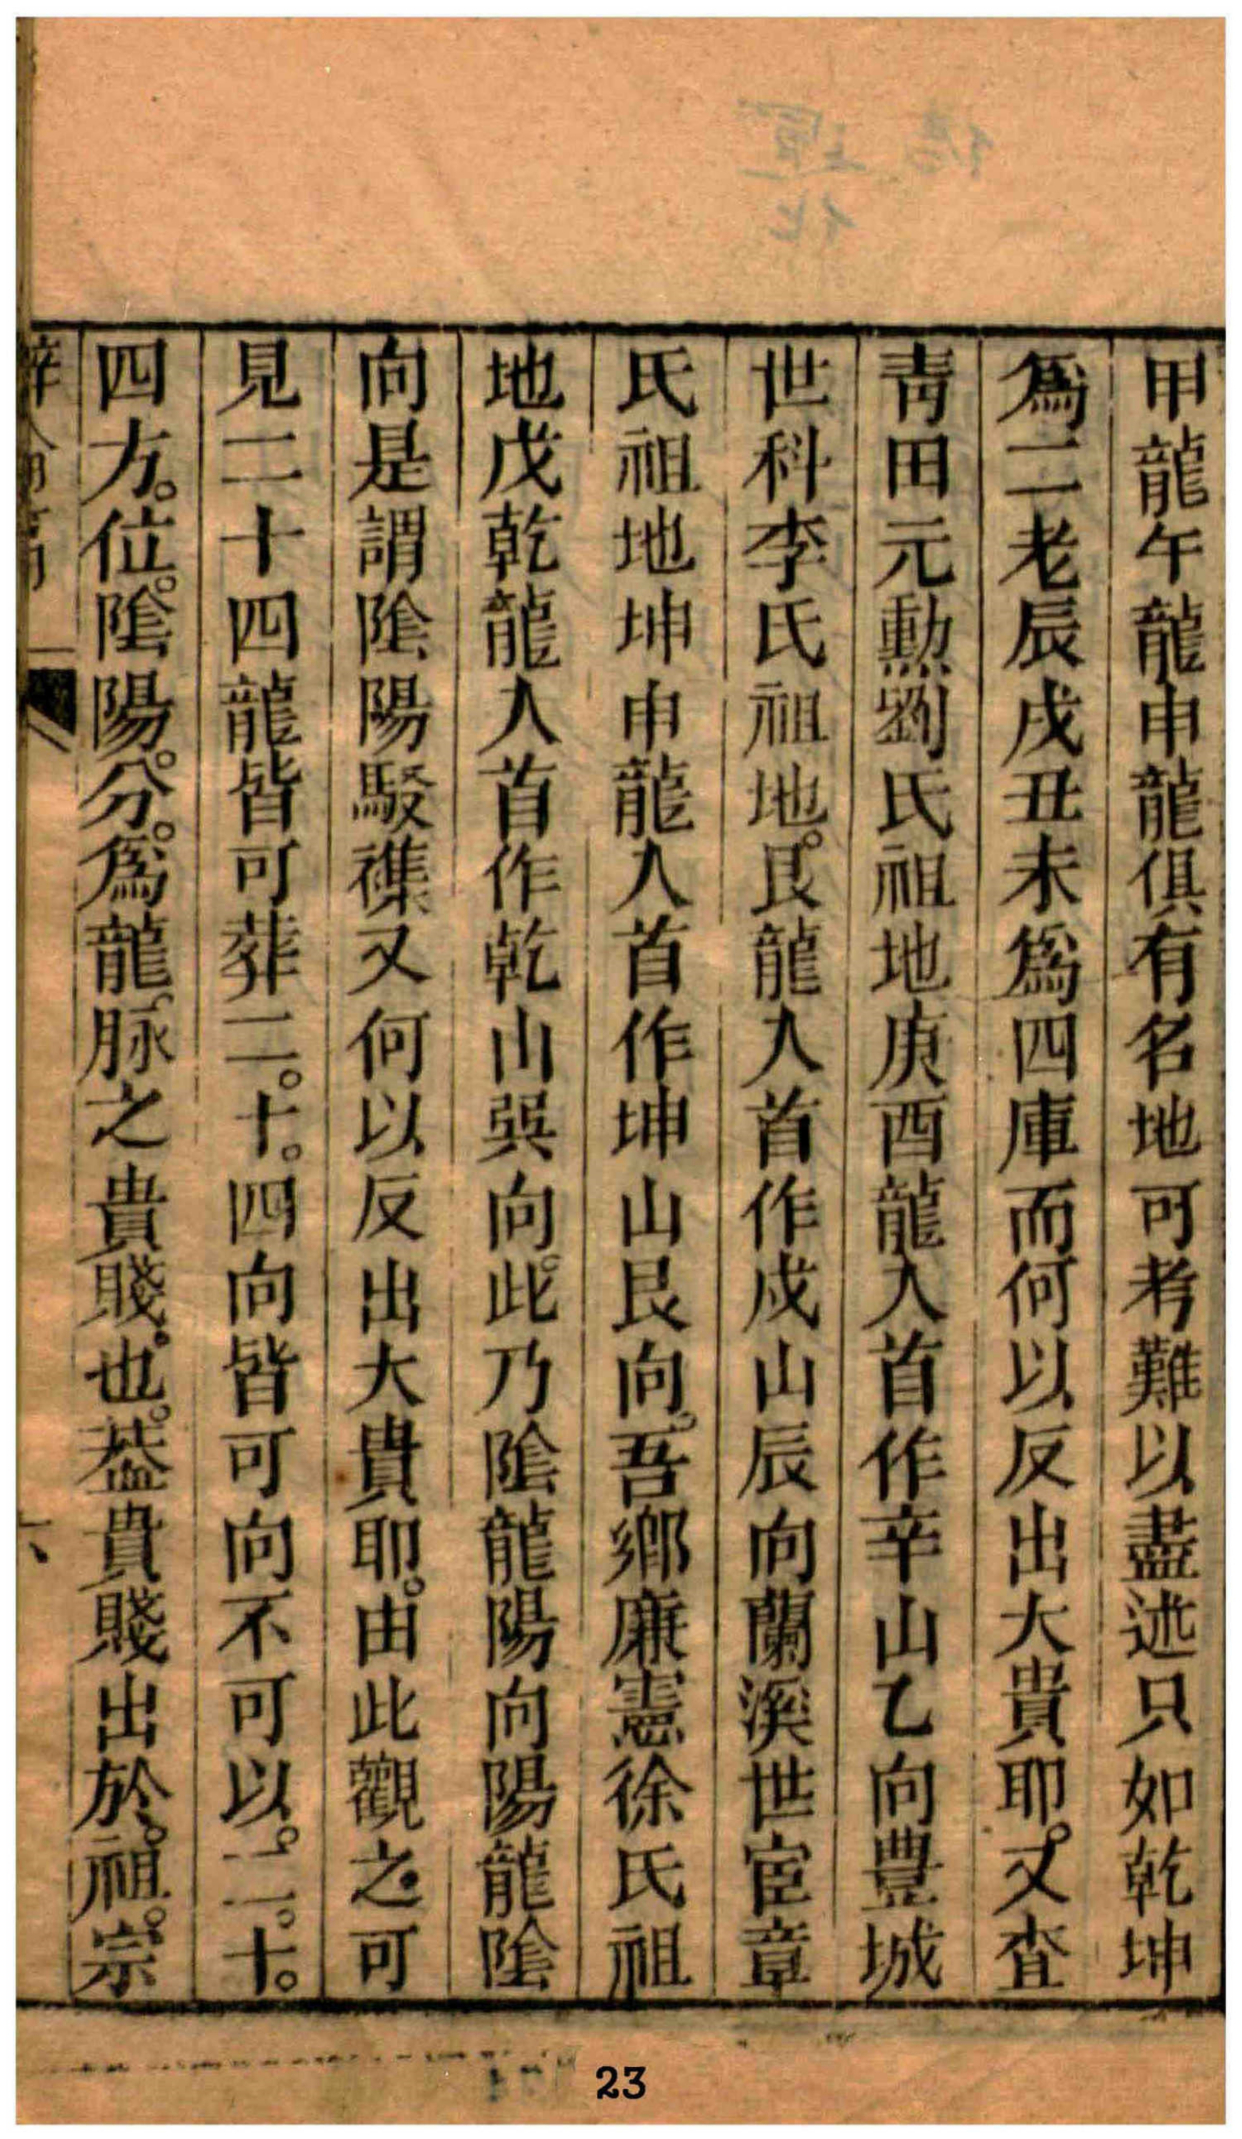 甲龍午龍申龍俱有名地可考難以盡述只如乾坤
爲二老辰戌丑未爲四庫而何以反出大貴耶。又查
靑田元勲劉氏祖地庚酉龍入首作辛山乙向豊城
世科李氏祖地。艮龍入首作戌山辰向蘭溪世宦章
氏祖地坤申龍入首作坤山艮向。吾鄉廉憲徐氏祖
地戊乾龍入首作乾山巽向。此乃陰龍陽向陽龍陰
向是謂陰陽駁襍又何以反出大貴耶。由此觀之可
見二十四龍皆可葬二。十。四向皆可向不可以。二。十。
四方。位。陰陽。分。爲龍。脉之貴賤。也。葢貴賤出於。祖。宗
六
23